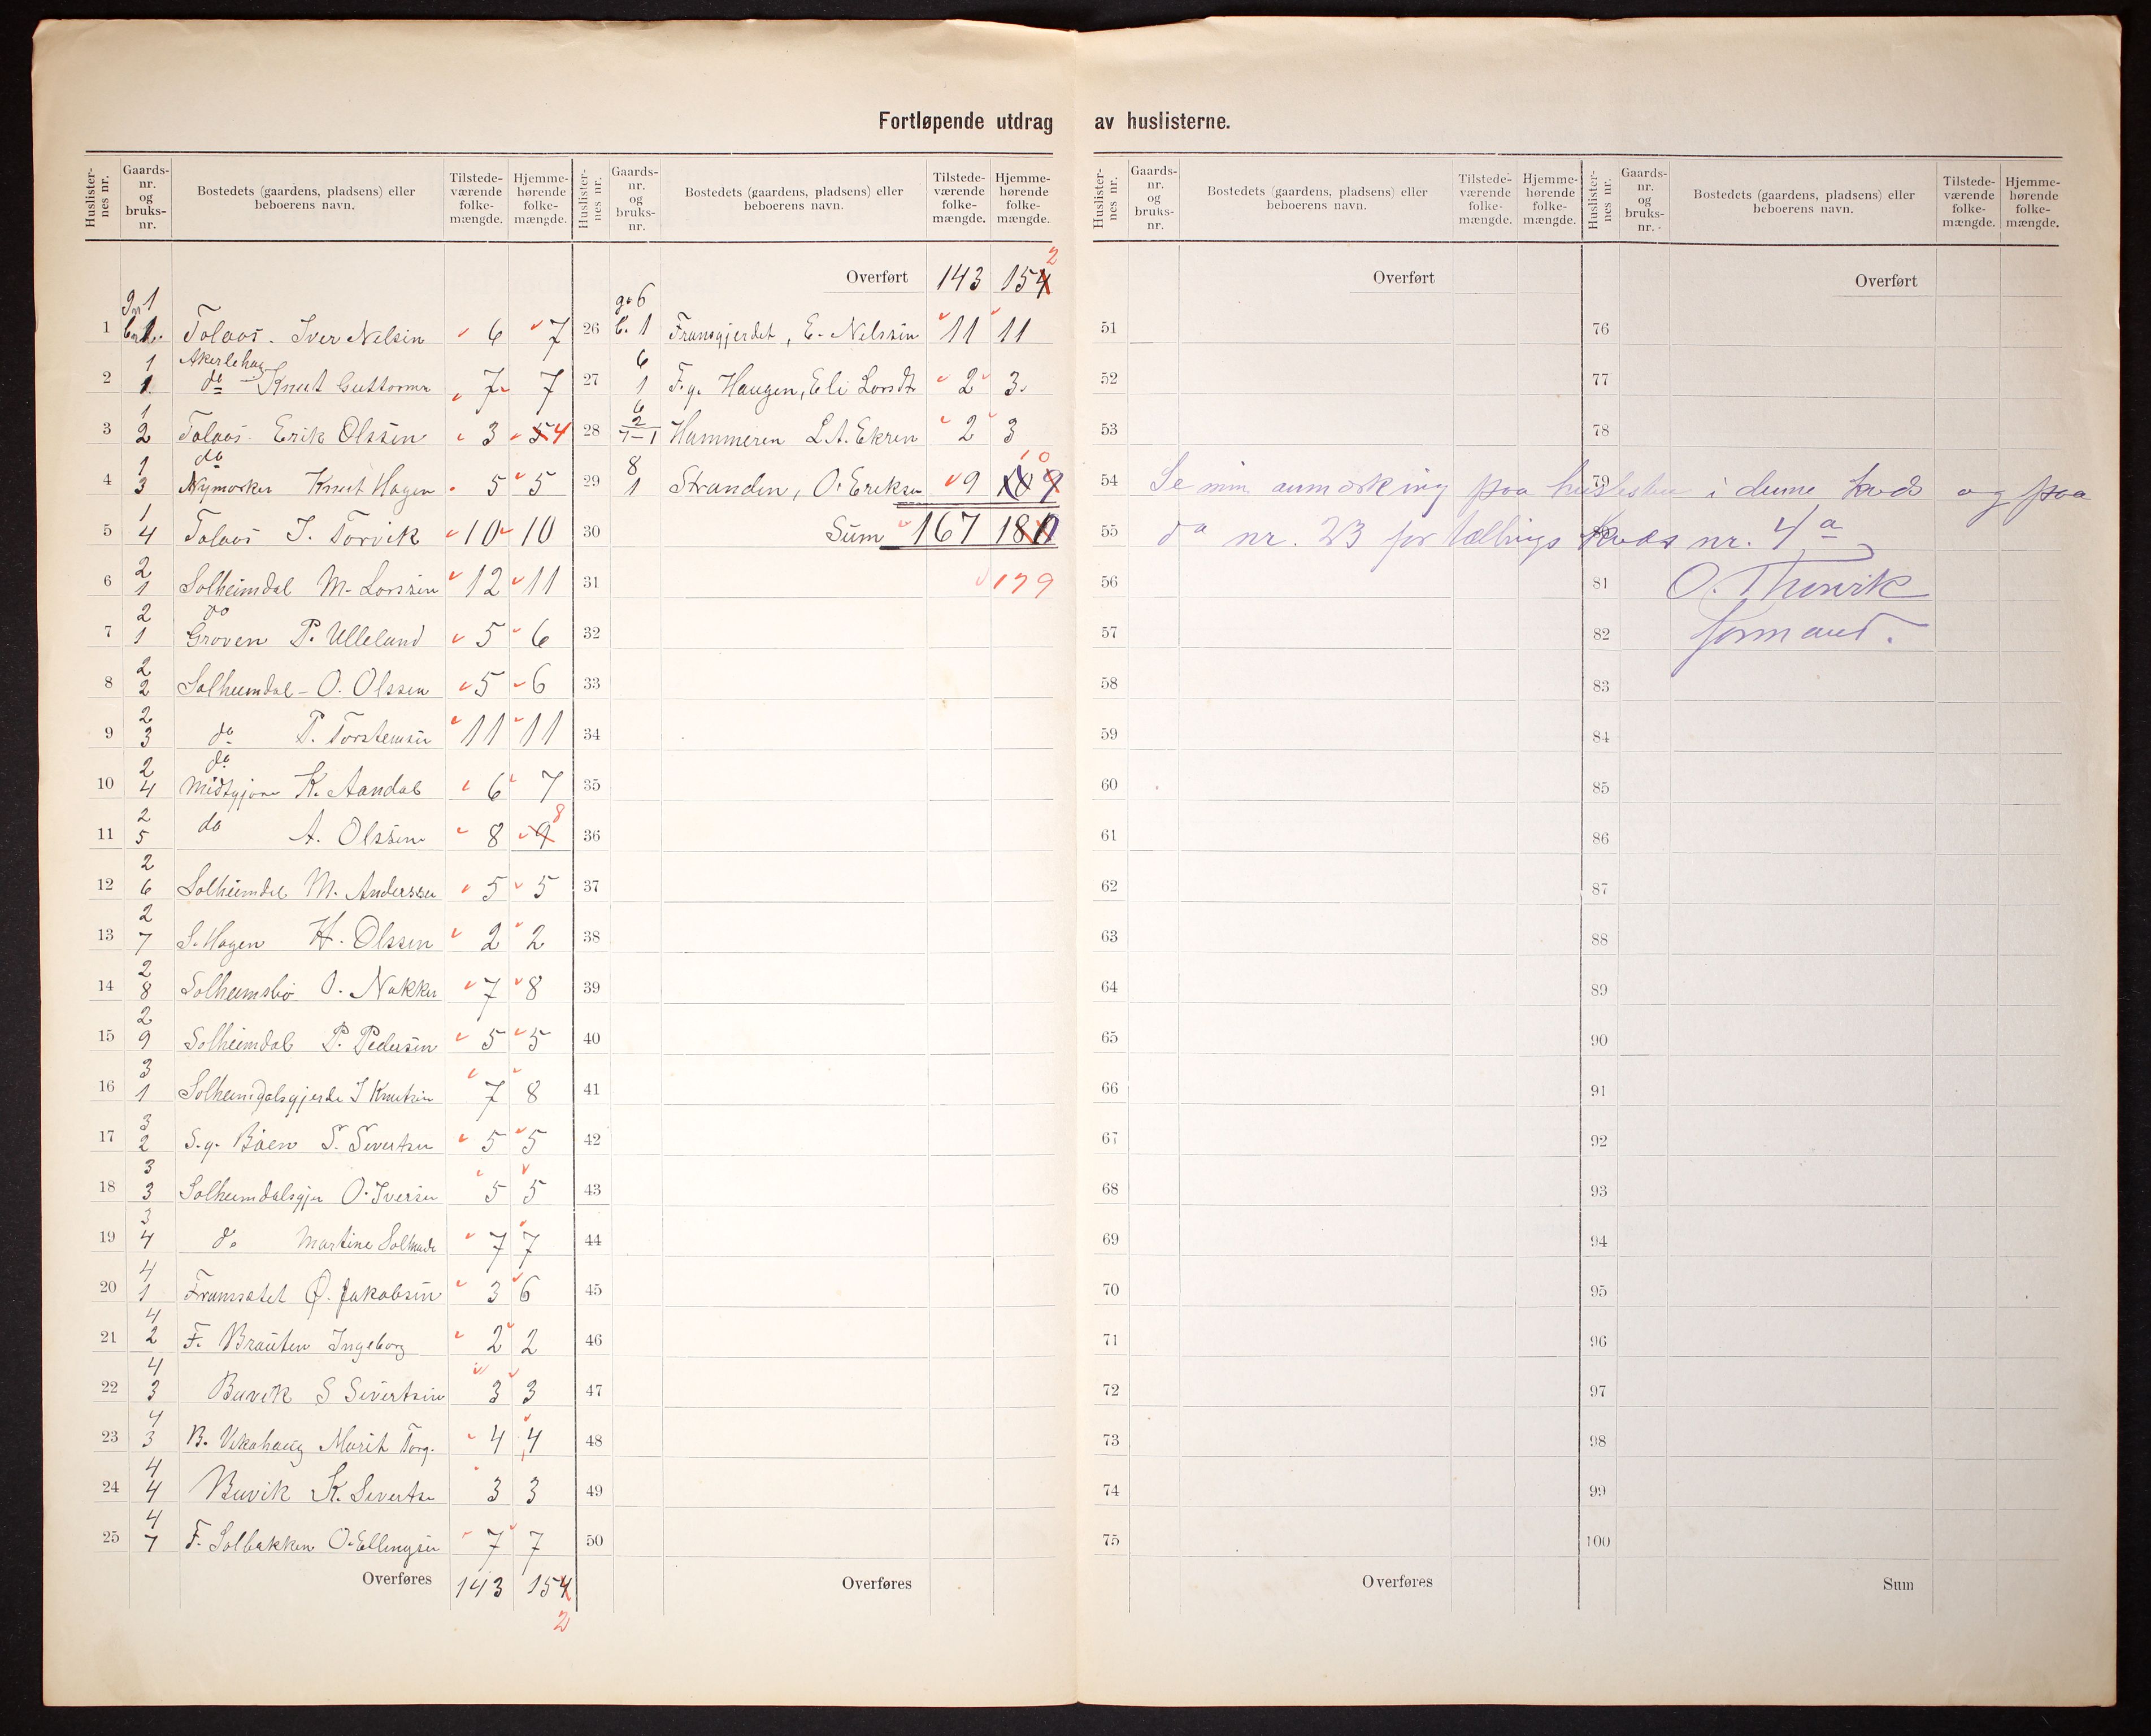 Fortløpende utdrag av huslisterne.
Huslisternes nr. Gaards-nr. og bruks-nr. Bostedets (gaardens, pladsens) eller beboerens navn. Tilstedeværende folkemængde. Hjemmehørende folkemængde.
1 1 Tolaas. Iver Nelsin 6 7
2 1 1 Akerlehaug do Knut Guttorms 7 7
3 1 2 Tolaas Erik Olssen 3 5 4
4 1 3 do Nymarken Knut Hagen 5 5
5 1 4 Tolaas I. Torvik 10 10
6 2 1 Solheimdal M. Larssen 12 11
7 2 1 do Groven P. Ulleland 5 6
8 2 2 Solheimdal - O. Olssen 5 6
9 2 3 do P. Torsteinsen 11 11
10 2 4 do Midtgjære K. Aandal 6 7
11 2 5 do A. Olssen 8 9 8
12 2 6 Solheimdal M. Anderssen 5 5
13 2 7 S. Hagen H. Olssen 2 2
14 2 8 Solheimsbø O. Nakken 7 8
15 2 9 Solheimdal P. Pedersen 5 5
16 3 1 Solheimdalsgjerde I Knutsen 7 8
17 3 2 S.g. Bøen S. Sivertsen 5 5
18 3 3 Solheimdalsgjer O. Iversen 5 5
19 3 4 do Martine 7 7
20 4 1 Framsætet O. Jakobsen 3 6
21 4 2 F. Brauten Ingeborg 2 2
22 4 3 Buvik S Sivertsen 3 3
23 4 3 B. Vikahaug Marit Torg. 4 4
24 4 4 Buvik K. Sivertsen 3 3
25 4 7 F. Solbakken O. Ellingsen 7 7
Overføres 143 154 2
Huslisternes nr. Gaards-nr. og bruks-nr. Bostedets (gaardens, pladsens) eller beboerens navn. Tilstedeværende folkemængde. Hjemmehørende folkemængde.
Overført 143 154 2
26 g. 6 b. 1 Framgjerdet, E. Nelssen 11 11
27 6 1 F.g. Haugen, Eli Larsdt. 2 3
28 6 2 Hammeren L.A. Ekren 2 3
29 8 1 Stranden, O. Eriksen 9 10
30 Sum 167 181
31 179
32
33
34
35
36
37
38
39
40
41
42
43
44
45
46
47
48
49
50
Overføres
Huslisternes nr. Gaards-nr. og bruks-nr. Bostedets (gaardens, pladsens) eller beboerens navn. Tilstedeværende folkemængde. Hjemmehørende folkemængde.
Overført
51
52
53
54 Se min anmerkning paa huslisten i denne kreds og paa
55 do nr. 23 for tællings kreds nr. 4a
56 O. Thorvik
57 formand.
58
59
60
61
62
63
64
65
66
67
68
69
70
71
72
73
74
75
Overføres
Huslisternes nr. Gaards-nr. og bruks-nr. Bostedets (gaardens, pladsens) eller beboerens navn. Tilstedeværende folkemængde. Hjemmehørende folkemængde.
Overført
76
77
78
79
81
82
83
84
85
86
87
88
89
90
91
92
93
94
95
96
97
98
99
100
Sum